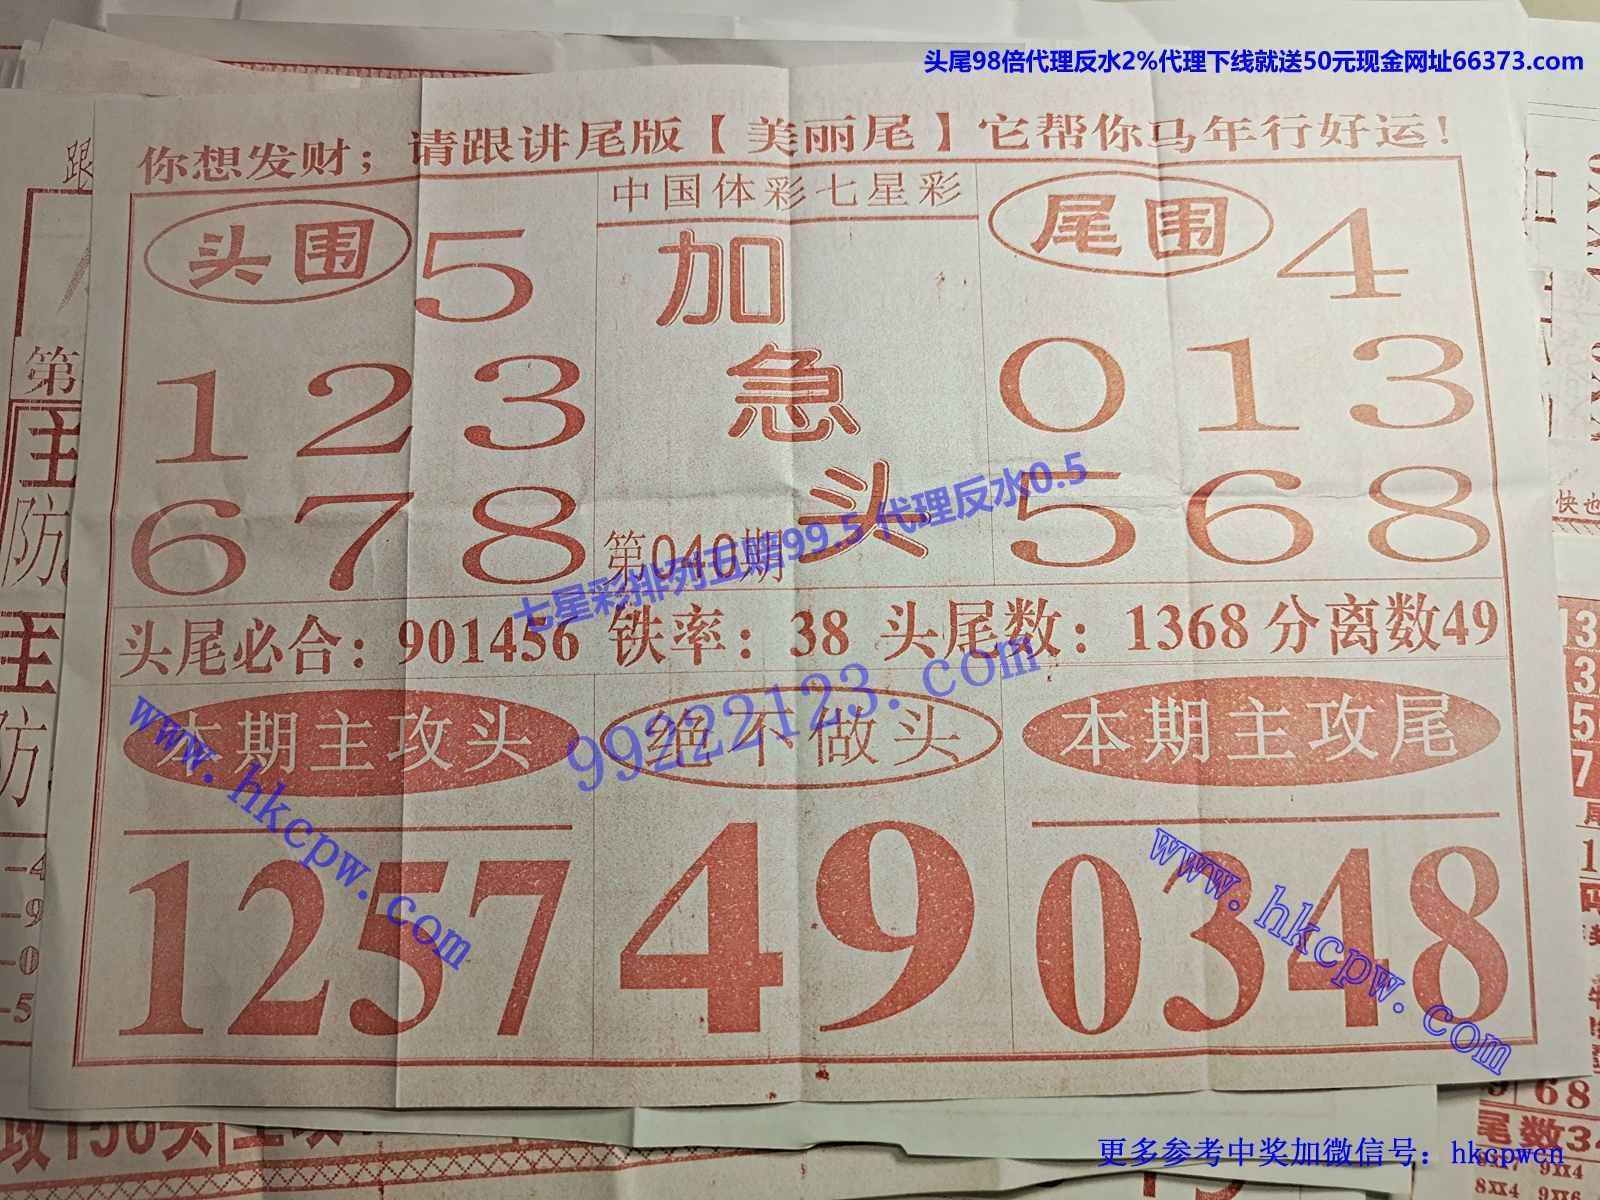 头尾98倍代理反水2%代理下线就送50元现金网址66373.com
你想发财；请跟讲尾版【美丽尾】它帮你马年行好运！
中国体彩七星彩
头围 5
1 2 3
6 7 8
加
急
头
第040期
尾围 4
0 1 3
5 6 8
七星彩排列五赔99.5 代理反水0.5
头尾必合：901456 铁率：38 头尾数：1368 分离数49
99222123.com
本期主攻头
1257
绝不做头
49
本期主攻尾
0348
www.hkcpw.com
www.hkcpw.com
第
主
防
主
防
快也
68
尾数3
更多参考中奖加微信号：hkcpwcn
8XX4